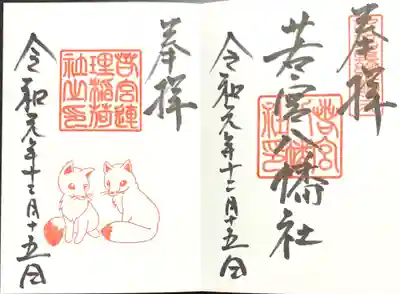 奉拝
若宮八幡社
令和元年十二月十五日
奉拝
若宮連
理稲荷
社之印
令和元年十二月十五日